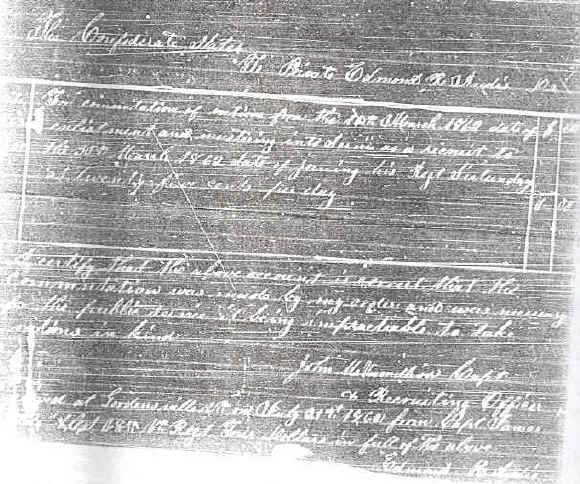 The Confederate States
To Private Edmond R. Dr
For commutation of rations from the 10th March 1862 date of
enlistment and mustering into service as a recruit to
the March 1862 date of joining his Regt
at twenty five cents per day
I certify that the above account is correct that the
commutation was made by my order and was necessary
for the public service it being impracticable to take
rations in kind
John Capt
& Recruiting Officer
at Gordonsville on July 21st 1862 from Capt James
Va Regt Four Dollars in full of the above
Edmond R.